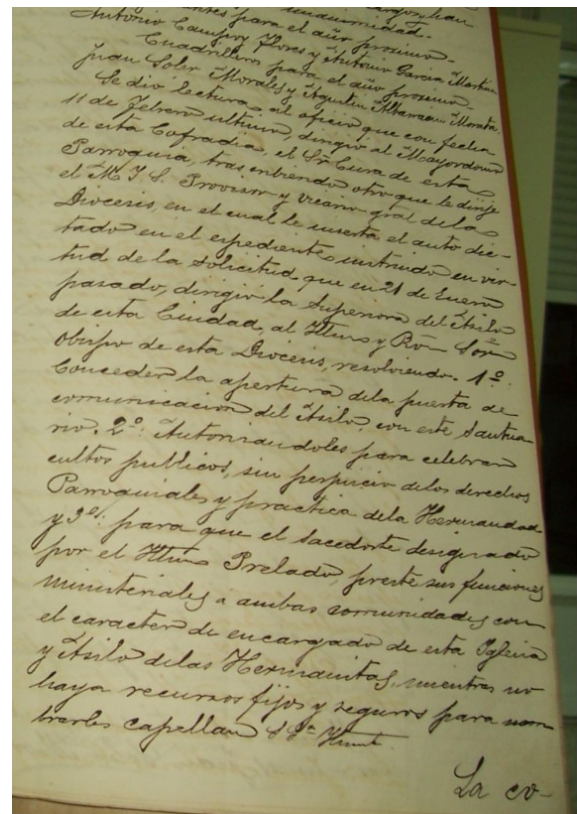 para el año proximo.
Antonio Campoy Flores y Antonio Garcia Martin
Cuadrilleros para el año proximo
Juan Soler Morales y Agustin Albarracin Morata
Se dió lectura al oficio que con fecha
11 de Febrero ultimo, dirigio al Mayordomo
de esta Cofradia, el Sr. Cura de esta
Parroquia, trascribiendo otro que le dirije
el M. I. S. Provisor y Vicario gral. de la
Diocesis, en el cual le inserta el auto dic-
tado en el espediente instruido en vir-
tud de la solicitud que en 21 de Enero
pasado, dirigió la Superiora del Asilo
de esta Ciudad, al Iltmo y Rdo Sor
Obispo de esta Diocesis, resolviendo. 1º.
Conceder la apertura dela puerta de
comunicacion del Asilo, con este Santua-
rio. 2º. Autorizandoles para celebrar
cultos publicos, sin perjuicio delos derechos
Parroquiales y practica dela Hermandad
y 3º. para que el Sacerdote designado
por el Iltmo Prelado, preste sus funciones
ministeriales a ambas comunidades con
el caracter de encargado de esta Iglesia
y Asilo delas Hermanitas, mientras no
haya recursos fijos y seguros para nom
brarles capellan
La co-